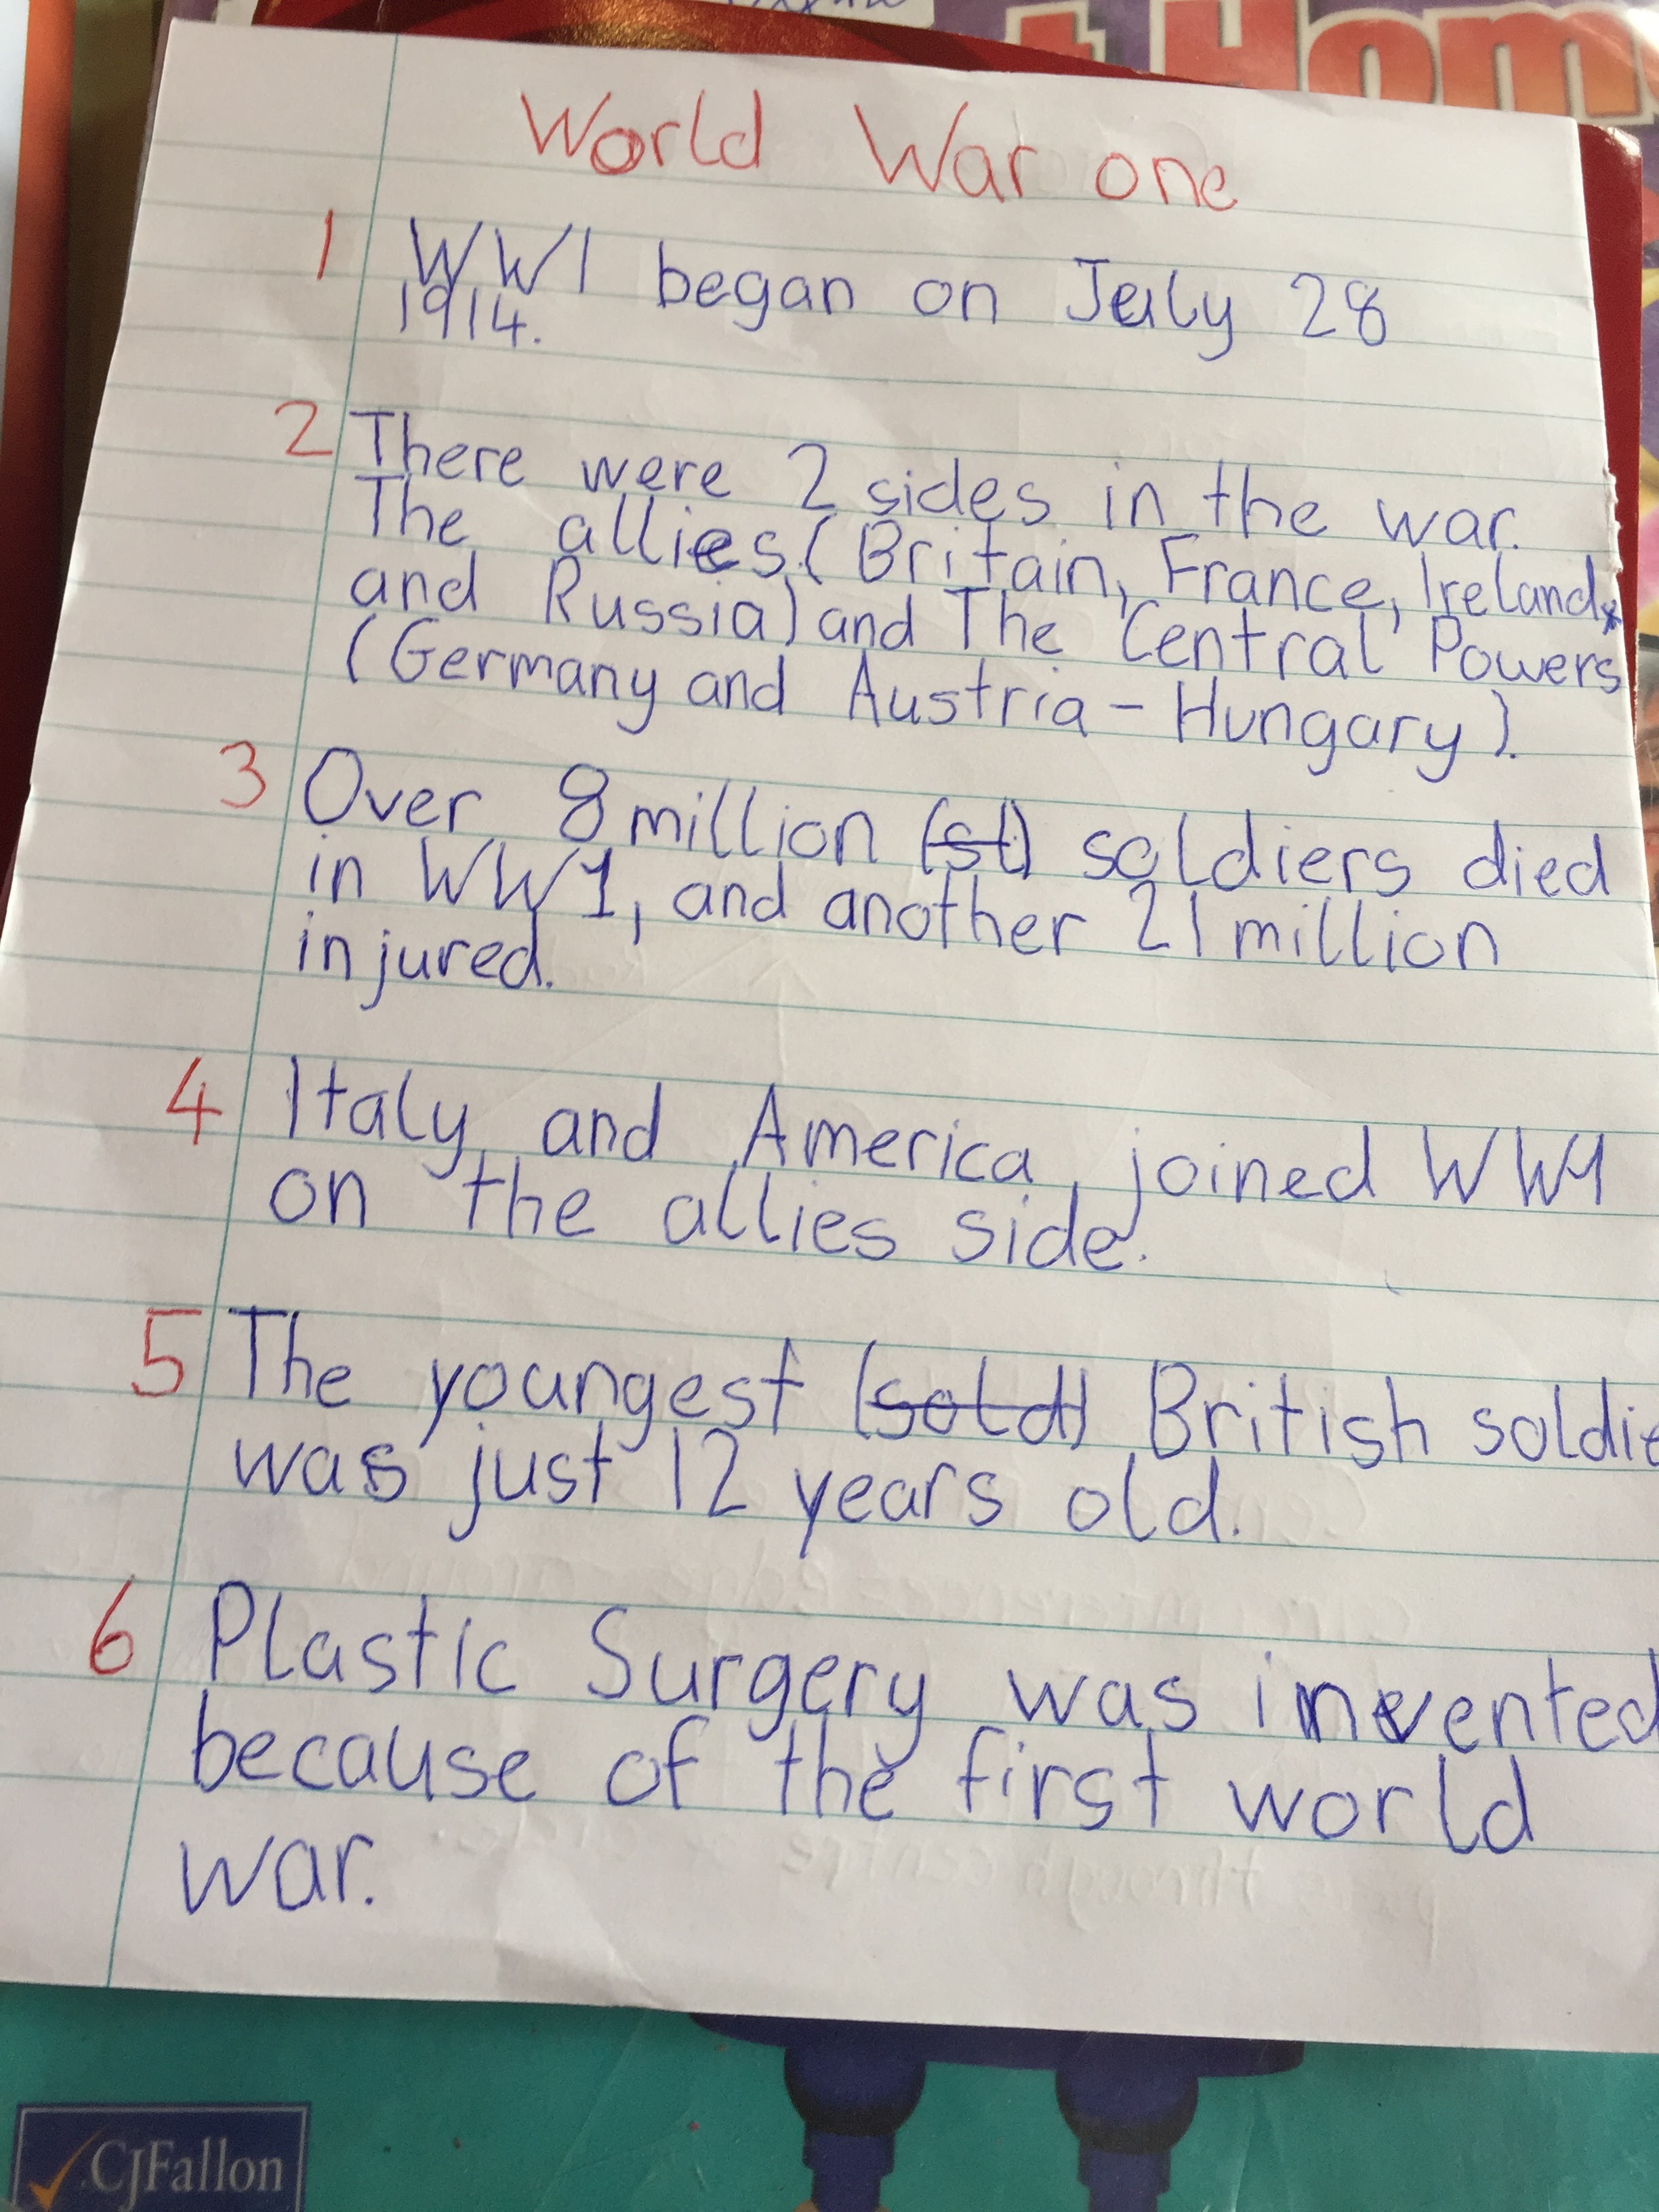 t Hom
World War one
1 WW1 began on July 28
1914.
2 There were 2 sides in the war.
The allies (Britain, France, Ireland,
and Russia) and The Central Powers
(Germany and Austria-Hungary).
3 Over 8 million (st) soldiers died
in WW1, and another 21 million
injured.
4 Italy and America, joined WW1
on the allies side.
5 The youngest (sold) British soldie
was just 12 years old.
6 Plastic Surgery was invented
because of the first world
war.
CJFallon